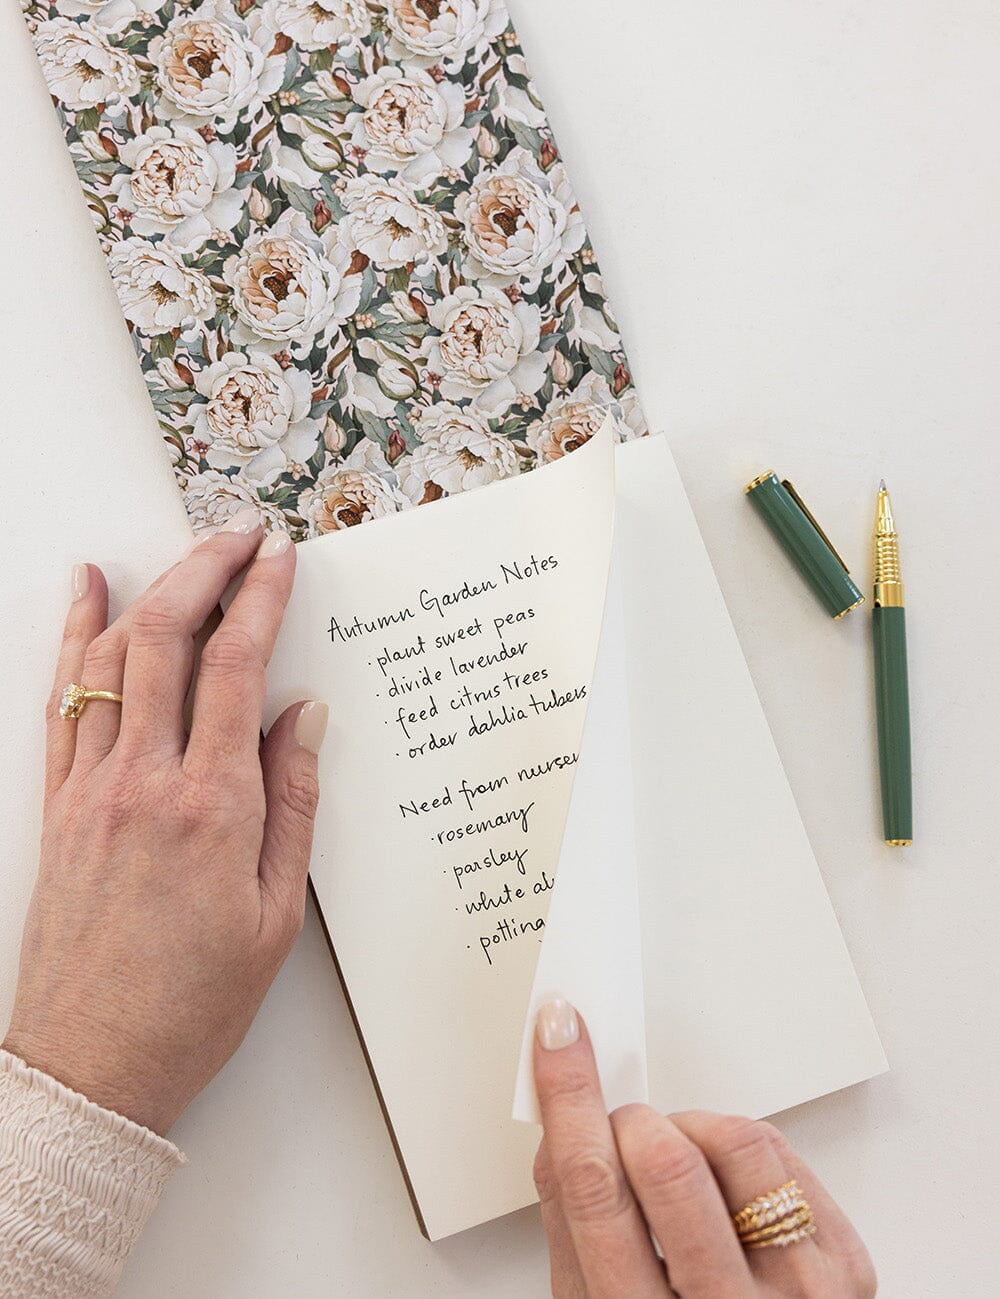 Autumn Garden Notes
· plant sweet peas
· divide lavender
· feed citrus trees
· order dahlia tubers
Need from
· rosemary
· parsley
· white
· potting